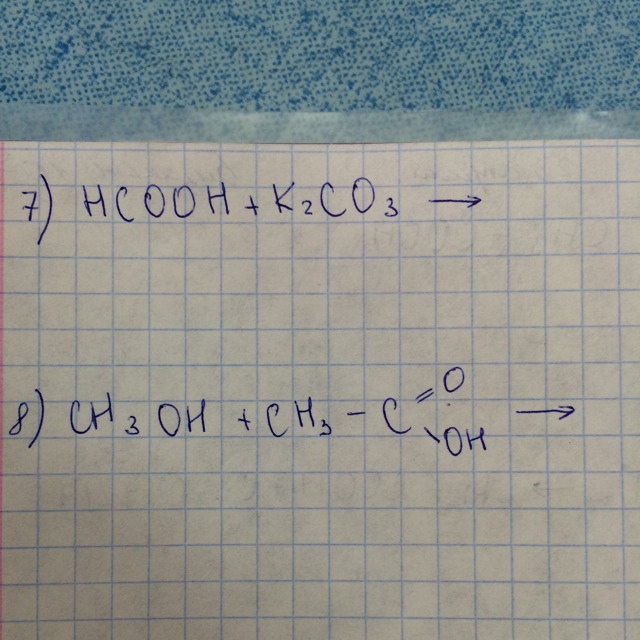 7) HCOOH + K₂CO₃ →
=O
8) CH₃OH + CH₃ - C →
\OH